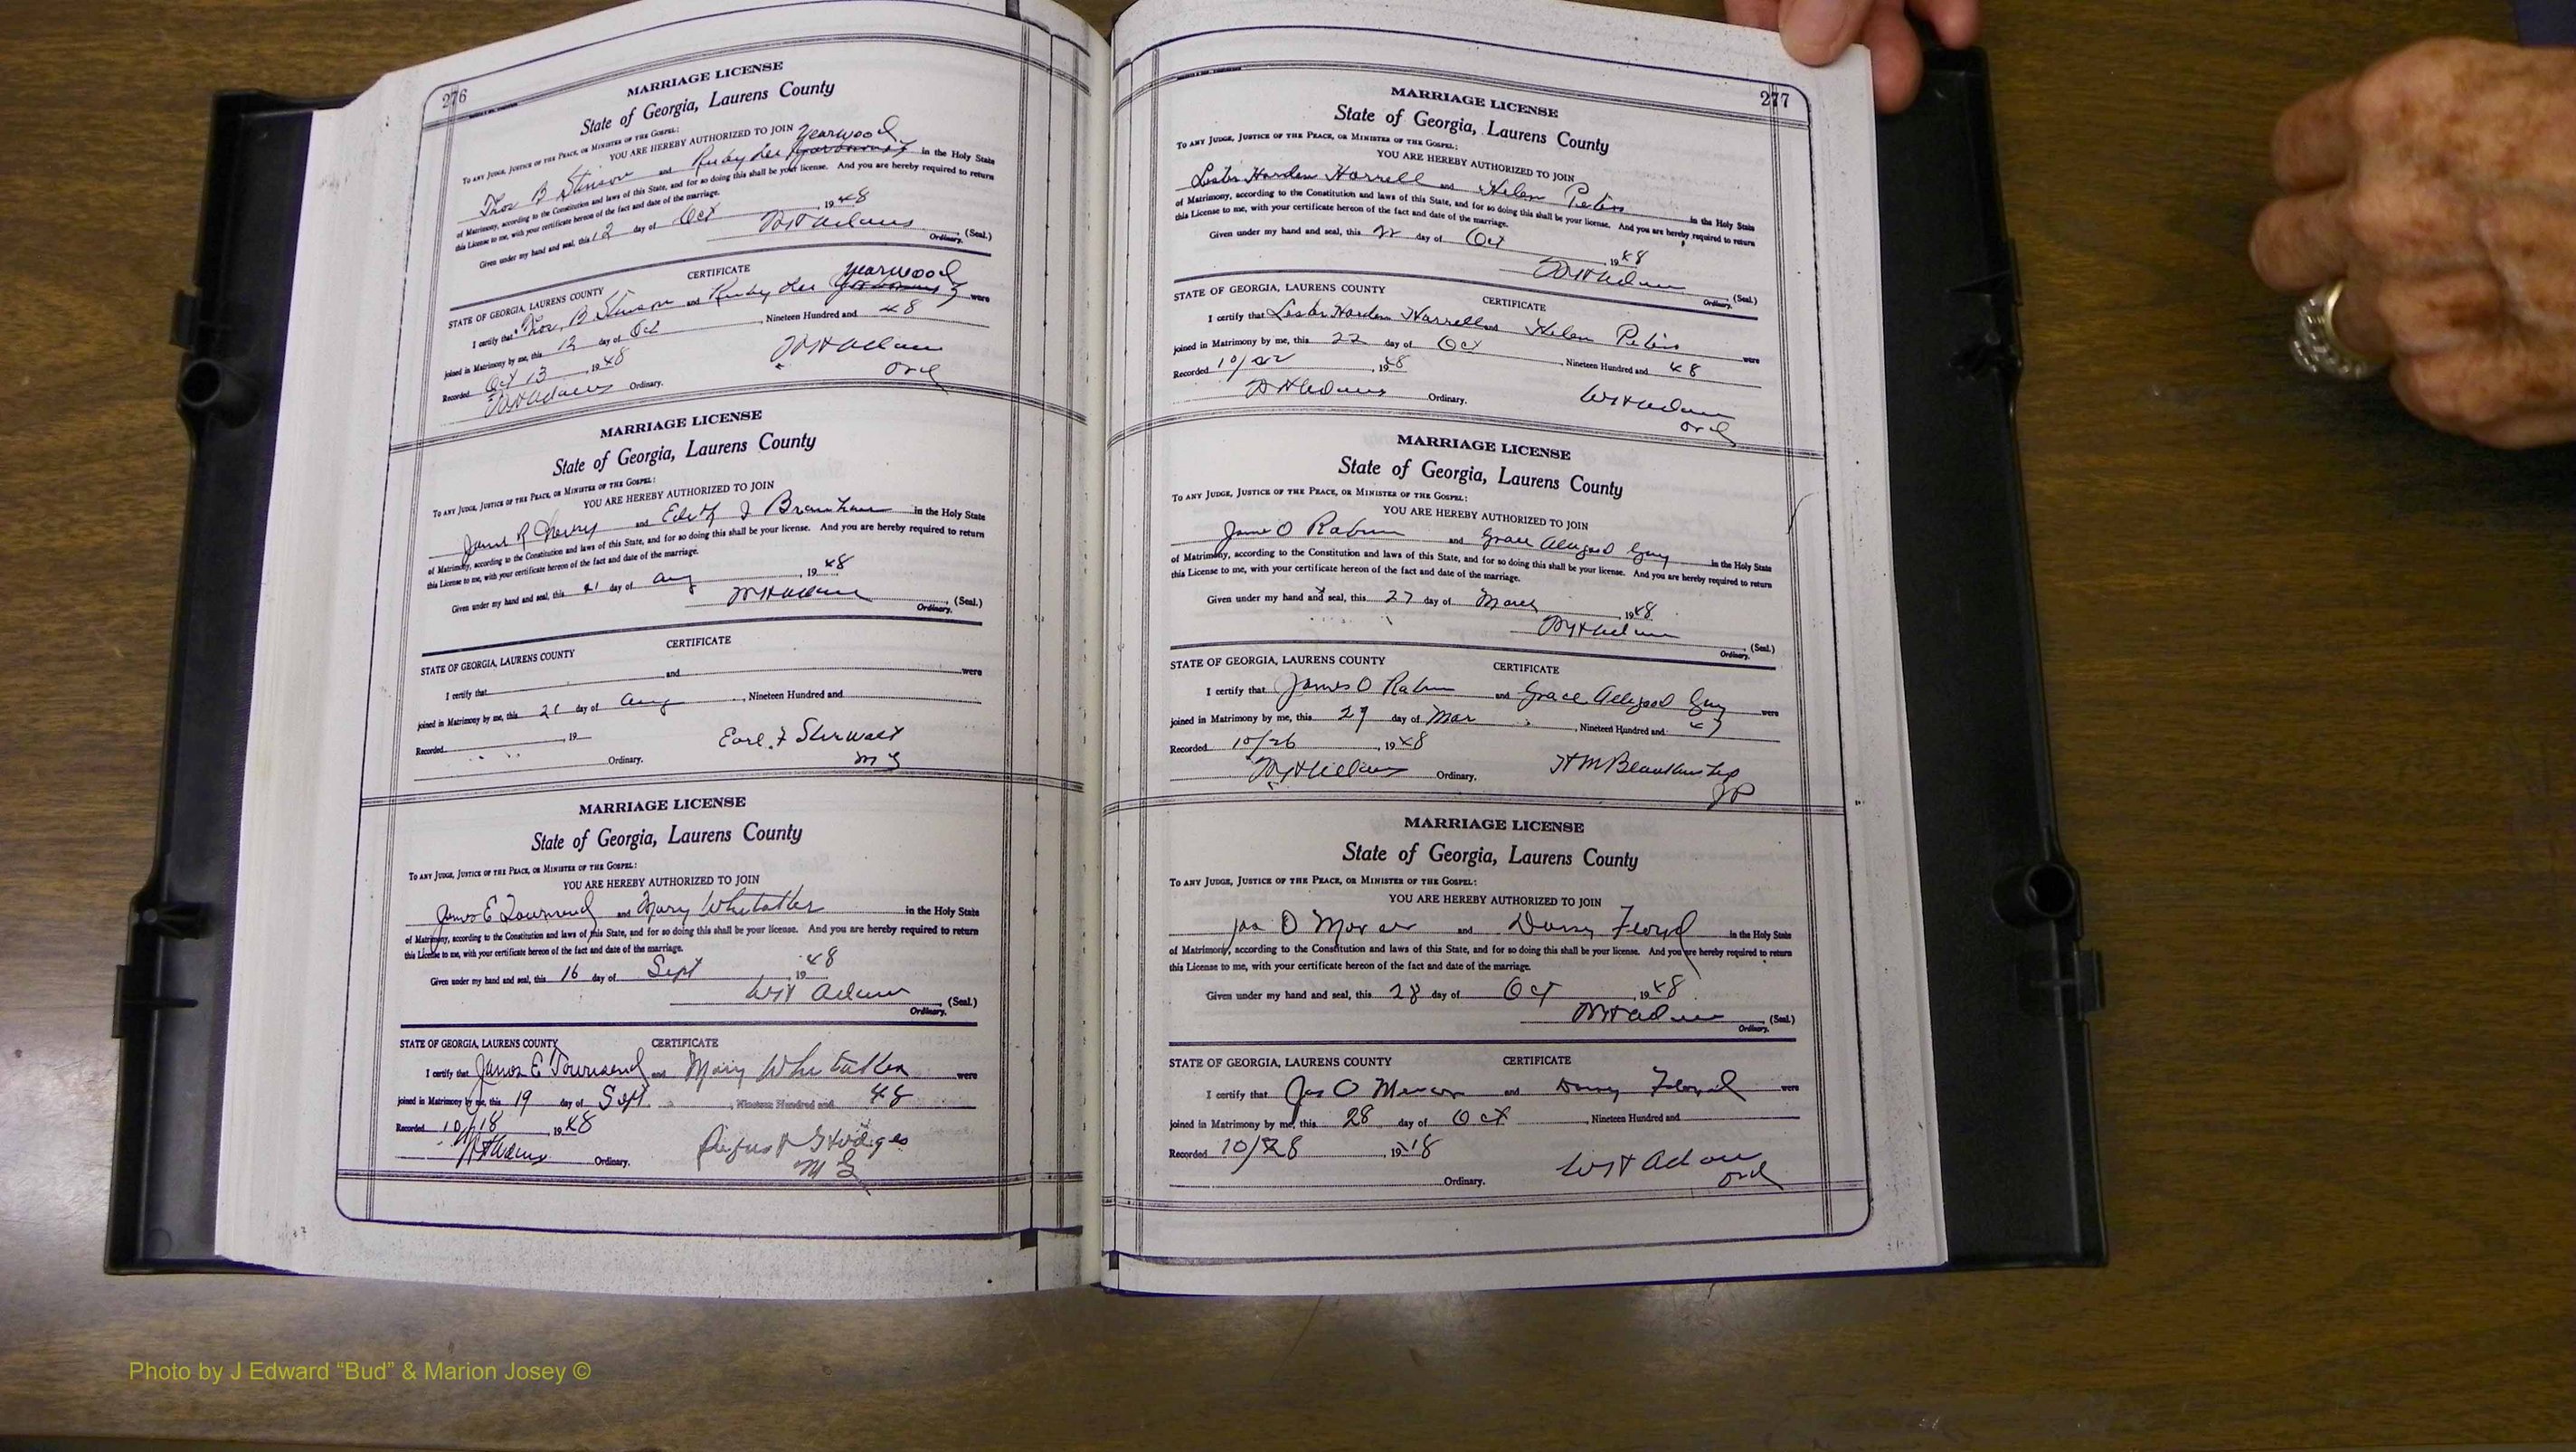 276
MARRIAGE LICENSE
State of Georgia, Laurens County
TO ANY JUDGE, JUSTICE OF THE PEACE, OR MINISTER OF THE GOSPEL:
YOU ARE HEREBY AUTHORIZED TO JOIN Yearwood
Thos B Stinson and Ruby Lee in the Holy State
of Matrimony, according to the Constitution and laws of this State, and for so doing this shall be your license. And you are hereby required to return
this License to me, with your certificate hereon of the fact and date of the marriage.
Given under my hand and seal, this 12 day of Oct, 1948
WH Adams (Seal.)
Ordinary.
CERTIFICATE Yearwood
STATE OF GEORGIA, LAURENS COUNTY
I certify that Thos. B Stinson and Ruby Lee were
joined in Matrimony by me, this 12 day of Oct, Nineteen Hundred and 48
Recorded Oct 13, 1948 WH Adams
WH Adams Ordinary. Ord
MARRIAGE LICENSE
State of Georgia, Laurens County
TO ANY JUDGE, JUSTICE OF THE PEACE, OR MINISTER OF THE GOSPEL:
YOU ARE HEREBY AUTHORIZED TO JOIN
R and Edith J in the Holy State
of Matrimony, according to the Constitution and laws of this State, and for so doing this shall be your license. And you are hereby required to return
this License to me, with your certificate hereon of the fact and date of the marriage.
Given under my hand and seal, this 21 day of Aug, 1948
WH Adams (Seal.)
Ordinary.
CERTIFICATE
STATE OF GEORGIA, LAURENS COUNTY
I certify that and were
joined in Matrimony by me, this 21 day of Aug, Nineteen Hundred and
Recorded , 19 Earl F
Ordinary. M G
MARRIAGE LICENSE
State of Georgia, Laurens County
TO ANY JUDGE, JUSTICE OF THE PEACE, OR MINISTER OF THE GOSPEL:
YOU ARE HEREBY AUTHORIZED TO JOIN
James E Townsend and Mary Whitaker in the Holy State
of Matrimony, according to the Constitution and laws of this State, and for so doing this shall be your license. And you are hereby required to return
this License to me, with your certificate hereon of the fact and date of the marriage.
Given under my hand and seal, this 16 day of Sept, 1948
WH Adams (Seal.)
Ordinary.
STATE OF GEORGIA, LAURENS COUNTY CERTIFICATE
I certify that James E Townsend and Mary Whitaker were
joined in Matrimony by me, this 19 day of Sept, Nineteen Hundred and 48
Recorded 10/18, 1948 Hodges
WH Adams Ordinary. M G
277
MARRIAGE LICENSE
State of Georgia, Laurens County
TO ANY JUDGE, JUSTICE OF THE PEACE, OR MINISTER OF THE GOSPEL:
YOU ARE HEREBY AUTHORIZED TO JOIN
Lester Harden Harrell and Helen Peters in the Holy State
of Matrimony, according to the Constitution and laws of this State, and for so doing this shall be your license. And you are hereby required to return
this License to me, with your certificate hereon of the fact and date of the marriage.
Given under my hand and seal, this 22 day of Oct, 1948
WH Adams (Seal.)
Ordinary.
STATE OF GEORGIA, LAURENS COUNTY CERTIFICATE
I certify that Lester Harden Harrell and Helen Peters were
joined in Matrimony by me, this 22 day of Oct, Nineteen Hundred and 48
Recorded 10/22, 1948
WH Adams Ordinary. WH Adams
Ord
MARRIAGE LICENSE
State of Georgia, Laurens County
TO ANY JUDGE, JUSTICE OF THE PEACE, OR MINISTER OF THE GOSPEL:
YOU ARE HEREBY AUTHORIZED TO JOIN
James O Rabun and Grace Allegood Guy in the Holy State
of Matrimony, according to the Constitution and laws of this State, and for so doing this shall be your license. And you are hereby required to return
this License to me, with your certificate hereon of the fact and date of the marriage.
Given under my hand and seal, this 27 day of March, 1948
WH Adams (Seal.)
Ordinary.
STATE OF GEORGIA, LAURENS COUNTY CERTIFICATE
I certify that James O Rabun and Grace Allegood Guy were
joined in Matrimony by me, this day of Mar, Nineteen Hundred and
Recorded 10/26, 1948
WH Adams Ordinary. HM Blankenship
JP
MARRIAGE LICENSE
State of Georgia, Laurens County
TO ANY JUDGE, JUSTICE OF THE PEACE, OR MINISTER OF THE GOSPEL:
YOU ARE HEREBY AUTHORIZED TO JOIN
Jas O Mercer and Floyd in the Holy State
of Matrimony, according to the Constitution and laws of this State, and for so doing this shall be your license. And you are hereby required to return
this License to me, with your certificate hereon of the fact and date of the marriage.
Given under my hand and seal, this 28 day of Oct, 1948
WH Adams (Seal.)
Ordinary.
STATE OF GEORGIA, LAURENS COUNTY CERTIFICATE
I certify that Jas O Mercer and Floyd were
joined in Matrimony by me, this 28 day of Oct, Nineteen Hundred and
Recorded 10/28, 19
Ordinary. WH Adams
Ord
Photo by J Edward “Bud” & Marion Josey ©